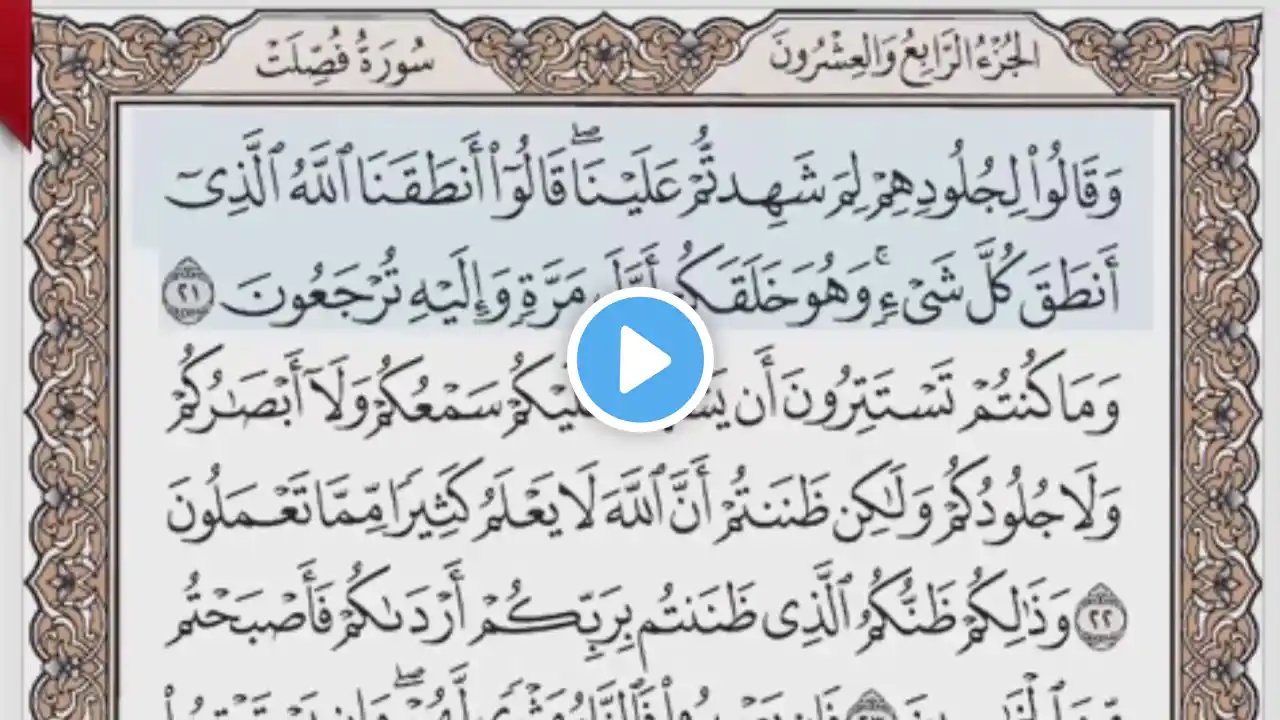 الجُزْءُ الرَّابِعُ وَالعِشْرُونَ
سُورَةُ فُصِّلَتْ
وَقَالُوا۟ لِجُلُودِهِمْ لِمَ شَهِدتُّمْ عَلَيْنَا ۖ قَالُوٓا۟ أَنطَقَنَا ٱللَّهُ ٱلَّذِىٓ
أَنطَقَ كُلَّ شَىْءٍۢ وَهُوَ خَلَقَكُمْ أَوَّلَ مَرَّةٍۢ وَإِلَيْهِ تُرْجَعُونَ ٢١
وَمَا كُنتُمْ تَسْتَتِرُونَ أَن عَلَيْكُمْ سَمْعُكُمْ وَلَآ أَبْصَـٰرُكُمْ
وَلَا جُلُودُكُمْ وَلَـٰكِن ظَنَنتُمْ أَنَّ ٱللَّهَ لَا يَعْلَمُ كَثِيرًۭا مِّمَّا تَعْمَلُونَ
٢٢ وَذَٰلِكُمْ ظَنُّكُمُ ٱلَّذِى ظَنَنتُم بِرَبِّكُمْ أَرْدَىٰكُمْ فَأَصْبَحْتُم